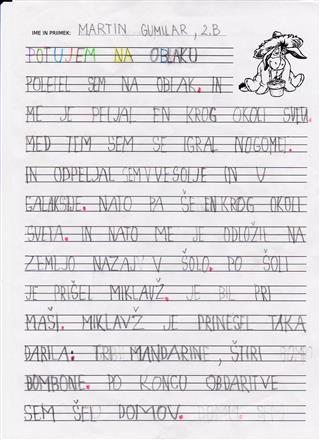 IME IN PRIIMEK: MARTIN GUMILAR, 2.B
POTUJEM NA OBLAKU
POLETEL SEM NA OBLAK. IN
ME JE PELJAL EN KROG OKOLI SVETA.
MED TEM SEM SE IGRAL NOGOMET.
IN ODPELJAL SEM V VESOLJE IN V
GALAKSIJE. NATO PA ŠE EN KROG OKOLI
SVETA. IN NATO ME JE ODLOŽIL NA
ZEMLJO NAZAJ V ŠOLO. PO ŠOLI
JE PRIŠEL MIKLAVŽ. JE BIL PRI
MAŠI. MIKLAVŽ JE PRINESEL TAKA
DARILA: TRI MANDARINE, ŠTIRI
BOMBONE. PO KONCU OBDARITVE
SEM ŠEL DOMOV.